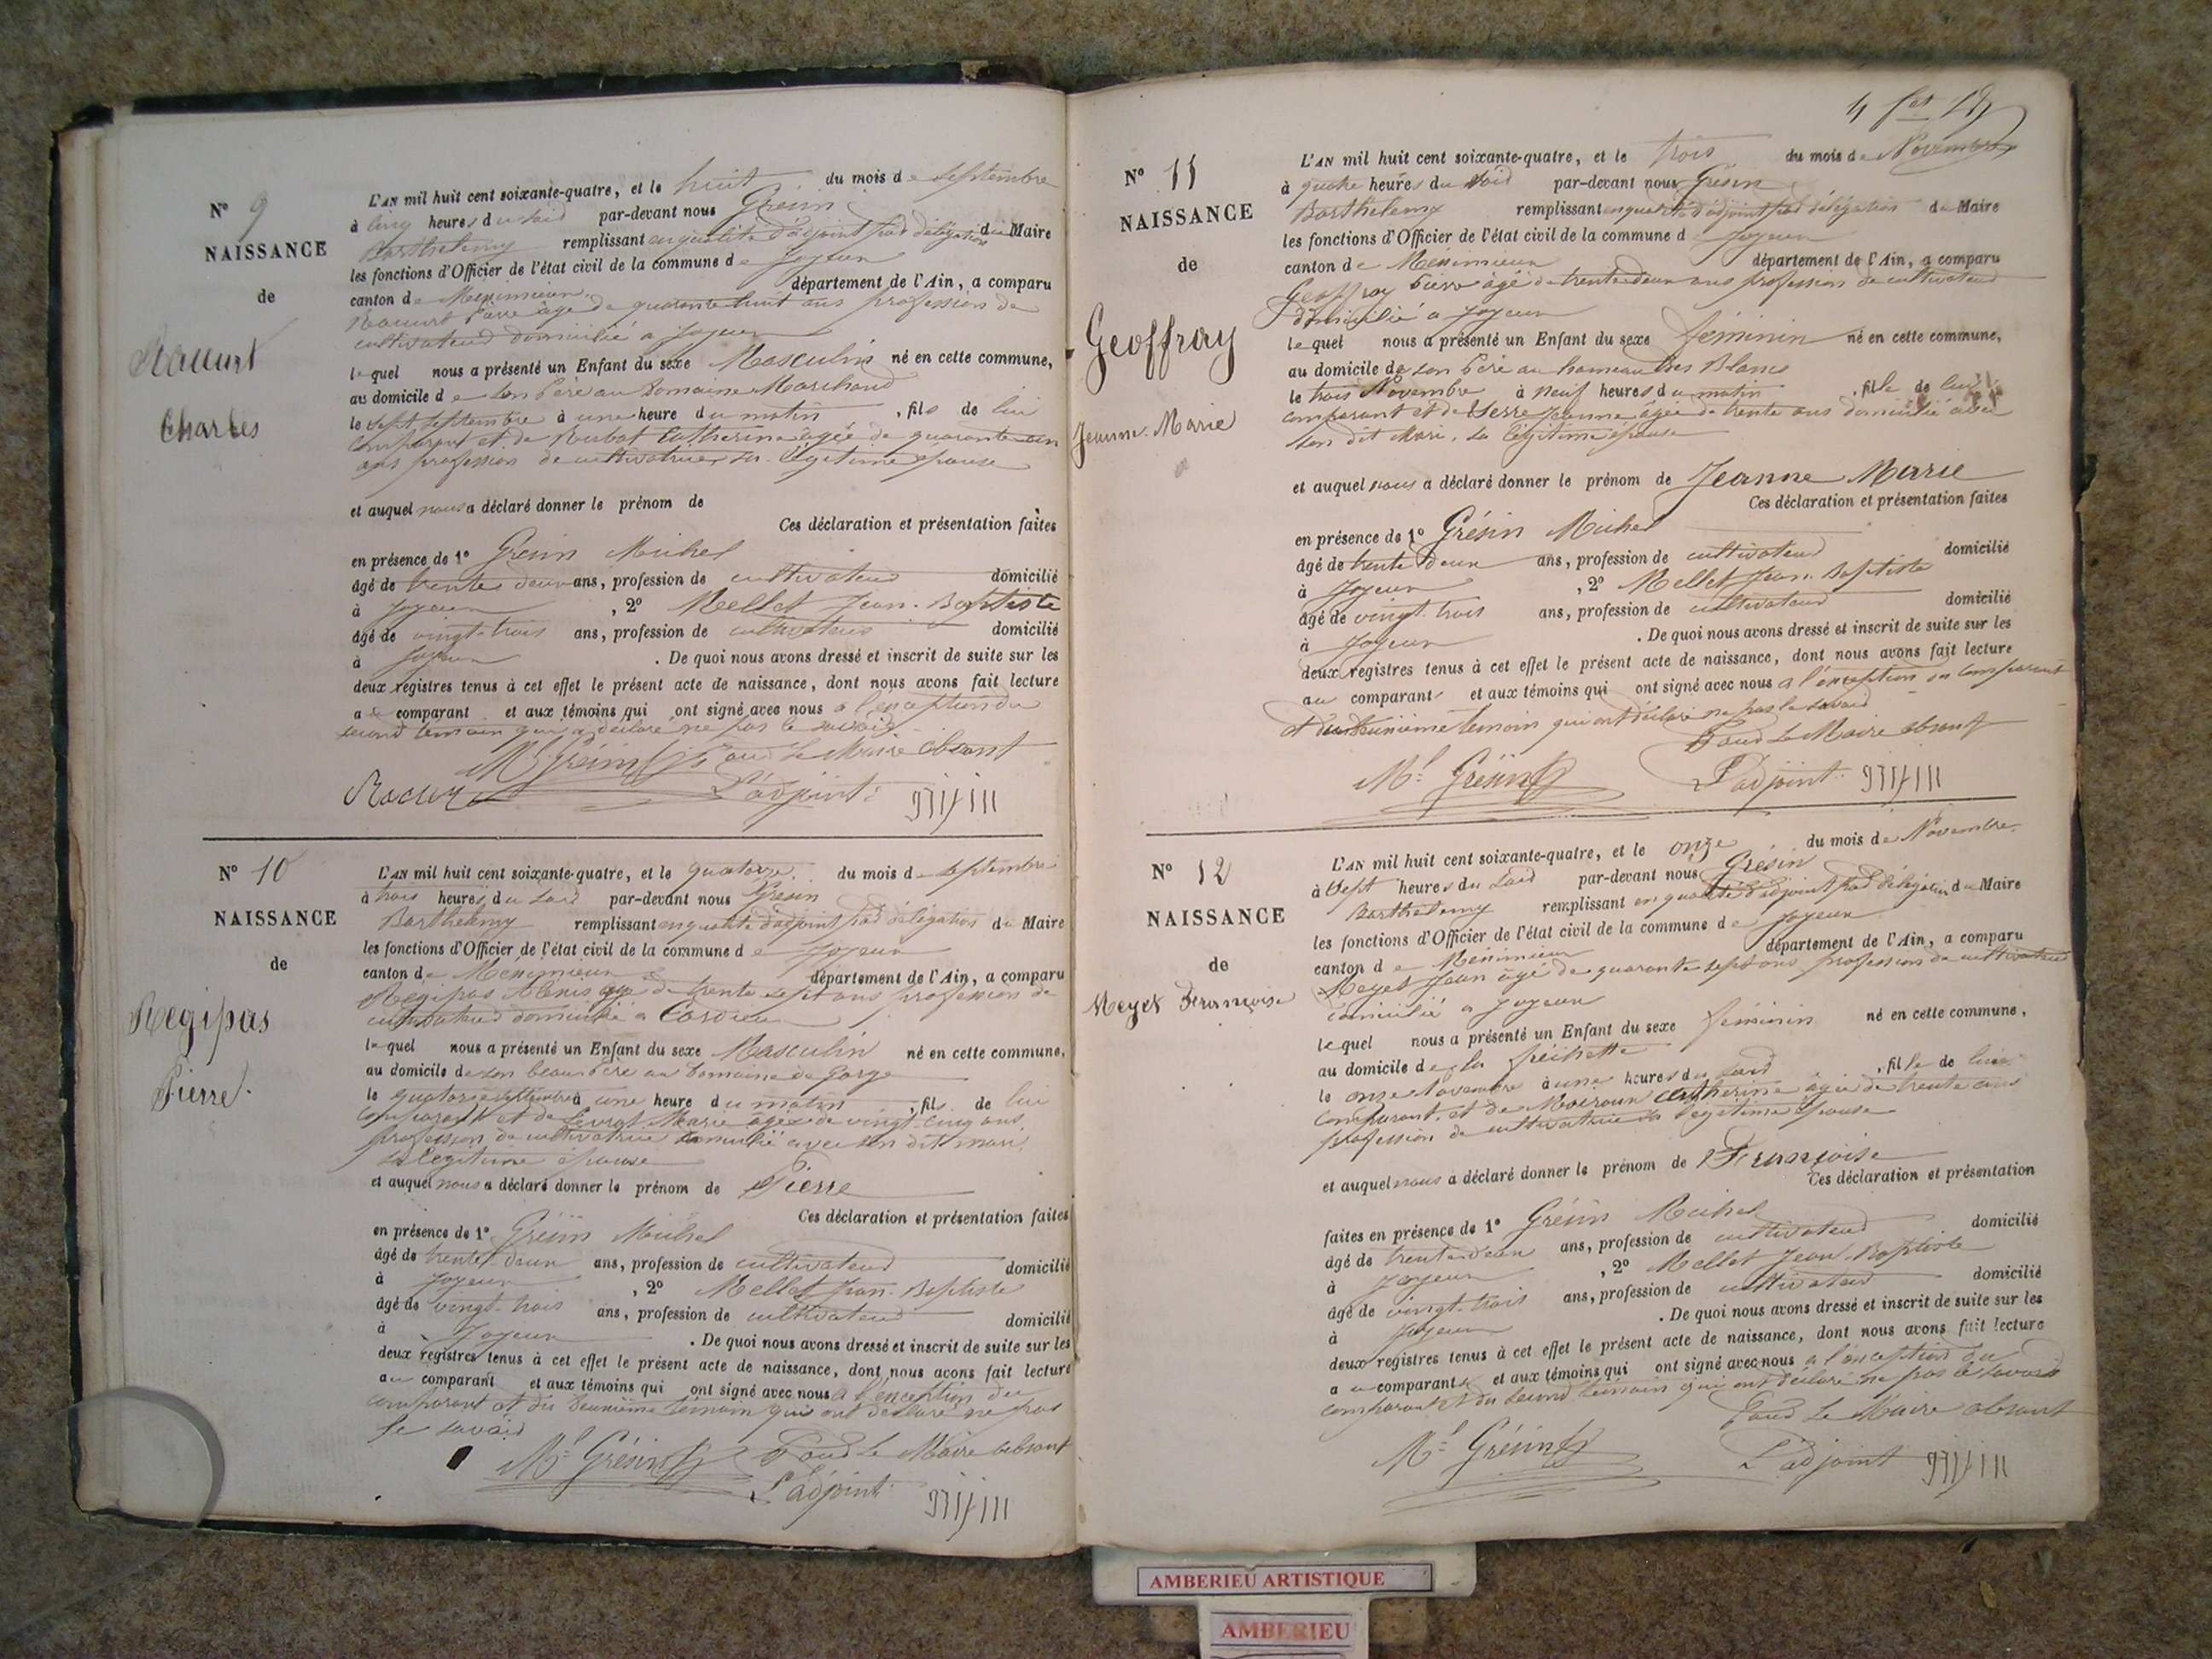 N° 9
NAISSANCE
de
Racurt
Charles
L'AN mil huit cent soixante-quatre, et le huit du mois de septembre
à cinq heures du soid par-devant nous Grésin
Barthelemy remplissant en qualité d'adjoint pad délégation du Maire
les fonctions d'Officier de l'état civil de la commune de Joyeux
canton de Meximieux département de l'Ain, a comparu
Racurt Pierre âgé de quarante huit ans profession de
cultivateud domicilié a Joyeux
lequel nous a présenté un Enfant du sexe Masculin né en cette commune,
au domicile de son père au Domaine Marchand
le sept septembre à une heure du matin , fils de lui
comparant et de Catherine âgée de quarante un
ans profession de cultivatrice sa légitime épouse
et auquel nous a déclaré donner le prénom de
Ces déclaration et présentation faites
en présence de 1° Grésin Michel
âgé de trente deux ans, profession de cultivateud domicilié
à Joyeux , 2° Mellet Jean-Baptiste
âgé de vingt-trois ans, profession de cultivateud domicilié
à Joyeux . De quoi nous avons dressé et inscrit de suite sur les
deux registres tenus à cet effet le présent acte de naissance, dont nous avons fait lecture
au comparant et aux témoins qui ont signé avec nous a l'exception du
second témoin qui a déclaré ne pas le savoid
M.l Grésin Poud le Maire absant
Racurt L'adjoint
N° 10
NAISSANCE
de
Regipas
Pierre
L'AN mil huit cent soixante-quatre, et le quatorze du mois de septembre
à trois heures du soid par-devant nous Grésin
Barthelemy remplissant en qualité d'adjoint pad délégation du Maire
les fonctions d'Officier de l'état civil de la commune de Joyeux
canton de Meximieux département de l'Ain, a comparu
Regipas Alexis âgé de trente sept ans profession de
cultivateud domicilié a Cordieux
lequel nous a présenté un Enfant du sexe Masculin né en cette commune,
au domicile de son beau père au Domaine de Gorge
le quatorze septembre à une heure du matin , fils de lui
comparant et de Marie âgée de vingt-cinq ans
profession de cultivatrice domicilié avec son dit mari,
sa légitime épouse
et auquel nous a déclaré donner le prénom de Pierre
Ces déclaration et présentation faites
en présence de 1° Grésin Michel
âgé de trente-deux ans, profession de cultivateud domicilié
à Joyeux , 2° Mellet Jean-Baptiste
âgé de vingt-trois ans, profession de cultivateud domicilié
à Joyeux . De quoi nous avons dressé et inscrit de suite sur les
deux registres tenus à cet effet le présent acte de naissance, dont nous avons fait lecture
au comparant et aux témoins qui ont signé avec nous a l'exception du
comparant et du deuxième témoin qui ont déclaré ne pas
le savoid
M.l Grésin Poud le Maire absant
L'adjoint
N° 11
NAISSANCE
de
Geoffray
Jeanne-Marie
L'AN mil huit cent soixante-quatre, et le trois du mois de Novembre
à quatre heures du soid par-devant nous Grésin
Barthelemy remplissant en qualité d'adjoint pad délégation du Maire
les fonctions d'Officier de l'état civil de la commune d Joyeux
canton de Meximieux département de l'Ain, a comparu
Geoffray Pierre âgé de trente deux ans profession de cultivateud
domicilié a Joyeux
lequel nous a présenté un Enfant du sexe féminin né en cette commune,
au domicile de son père au hameau des Blancs
le trois Novembre à neuf heures du matin , fille de lui
comparant et de Serre Jeanne âgée de trente ans domicilié avec
son dit Mari, sa légitime épouse
et auquel nous a déclaré donner le prénom de Jeanne Marie
Ces déclaration et présentation faites
en présence de 1° Grésin Michel
âgé de trente deux ans, profession de cultivateud domicilié
à Joyeux , 2° Mellet Jean-Baptiste
âgé de vingt-trois ans, profession de cultivateud domicilié
à Joyeux . De quoi nous avons dressé et inscrit de suite sur les
deux registres tenus à cet effet le présent acte de naissance, dont nous avons fait lecture
au comparant et aux témoins qui ont signé avec nous a l'exception du comparant
et du deuxième témoin qui ont déclaré ne pas le savoid
Poud le Maire absant
M.l Grésin L'adjoint
N° 12
NAISSANCE
de
Meyet Françoise
L'AN mil huit cent soixante-quatre, et le onze du mois de Novembre
à sept heures du soid par-devant nous Grésin
Barthelemy remplissant en qualité d'adjoint pad délégation du Maire
les fonctions d'Officier de l'état civil de la commune de Joyeux
canton de Meximieux département de l'Ain, a comparu
Meyet Jean âgé de quarante sept ans profession de cultivateud
domicilié a Joyeux
lequel nous a présenté un Enfant du sexe féminin né en cette commune,
au domicile de la
le onze Novembre à une heures du soid , fille de lui
comparant, et de Catherine âgée de trente ans
profession de cultivatrice sa légitime épouse
et auquel nous a déclaré donner le prénom de Françoise
Ces déclaration et présentation
faites en présence de 1° Grésin Michel
âgé de trente-deux ans, profession de cultivateud domicilié
à Joyeux , 2° Mellet Jean-Baptiste
âgé de vingt-trois ans, profession de cultivateud domicilié
à Joyeux . De quoi nous avons dressé et inscrit de suite sur les
deux registres tenus à cet effet le présent acte de naissance, dont nous avons fait lecture
au comparant et aux témoins qui ont signé avec nous a l'exception du
comparant et du second témoin qui ont déclaré ne pas le savoid
Poud le Maire absant
M.l Grésin L'adjoint
AMBERIEU ARTISTIQUE
AMBERIEU